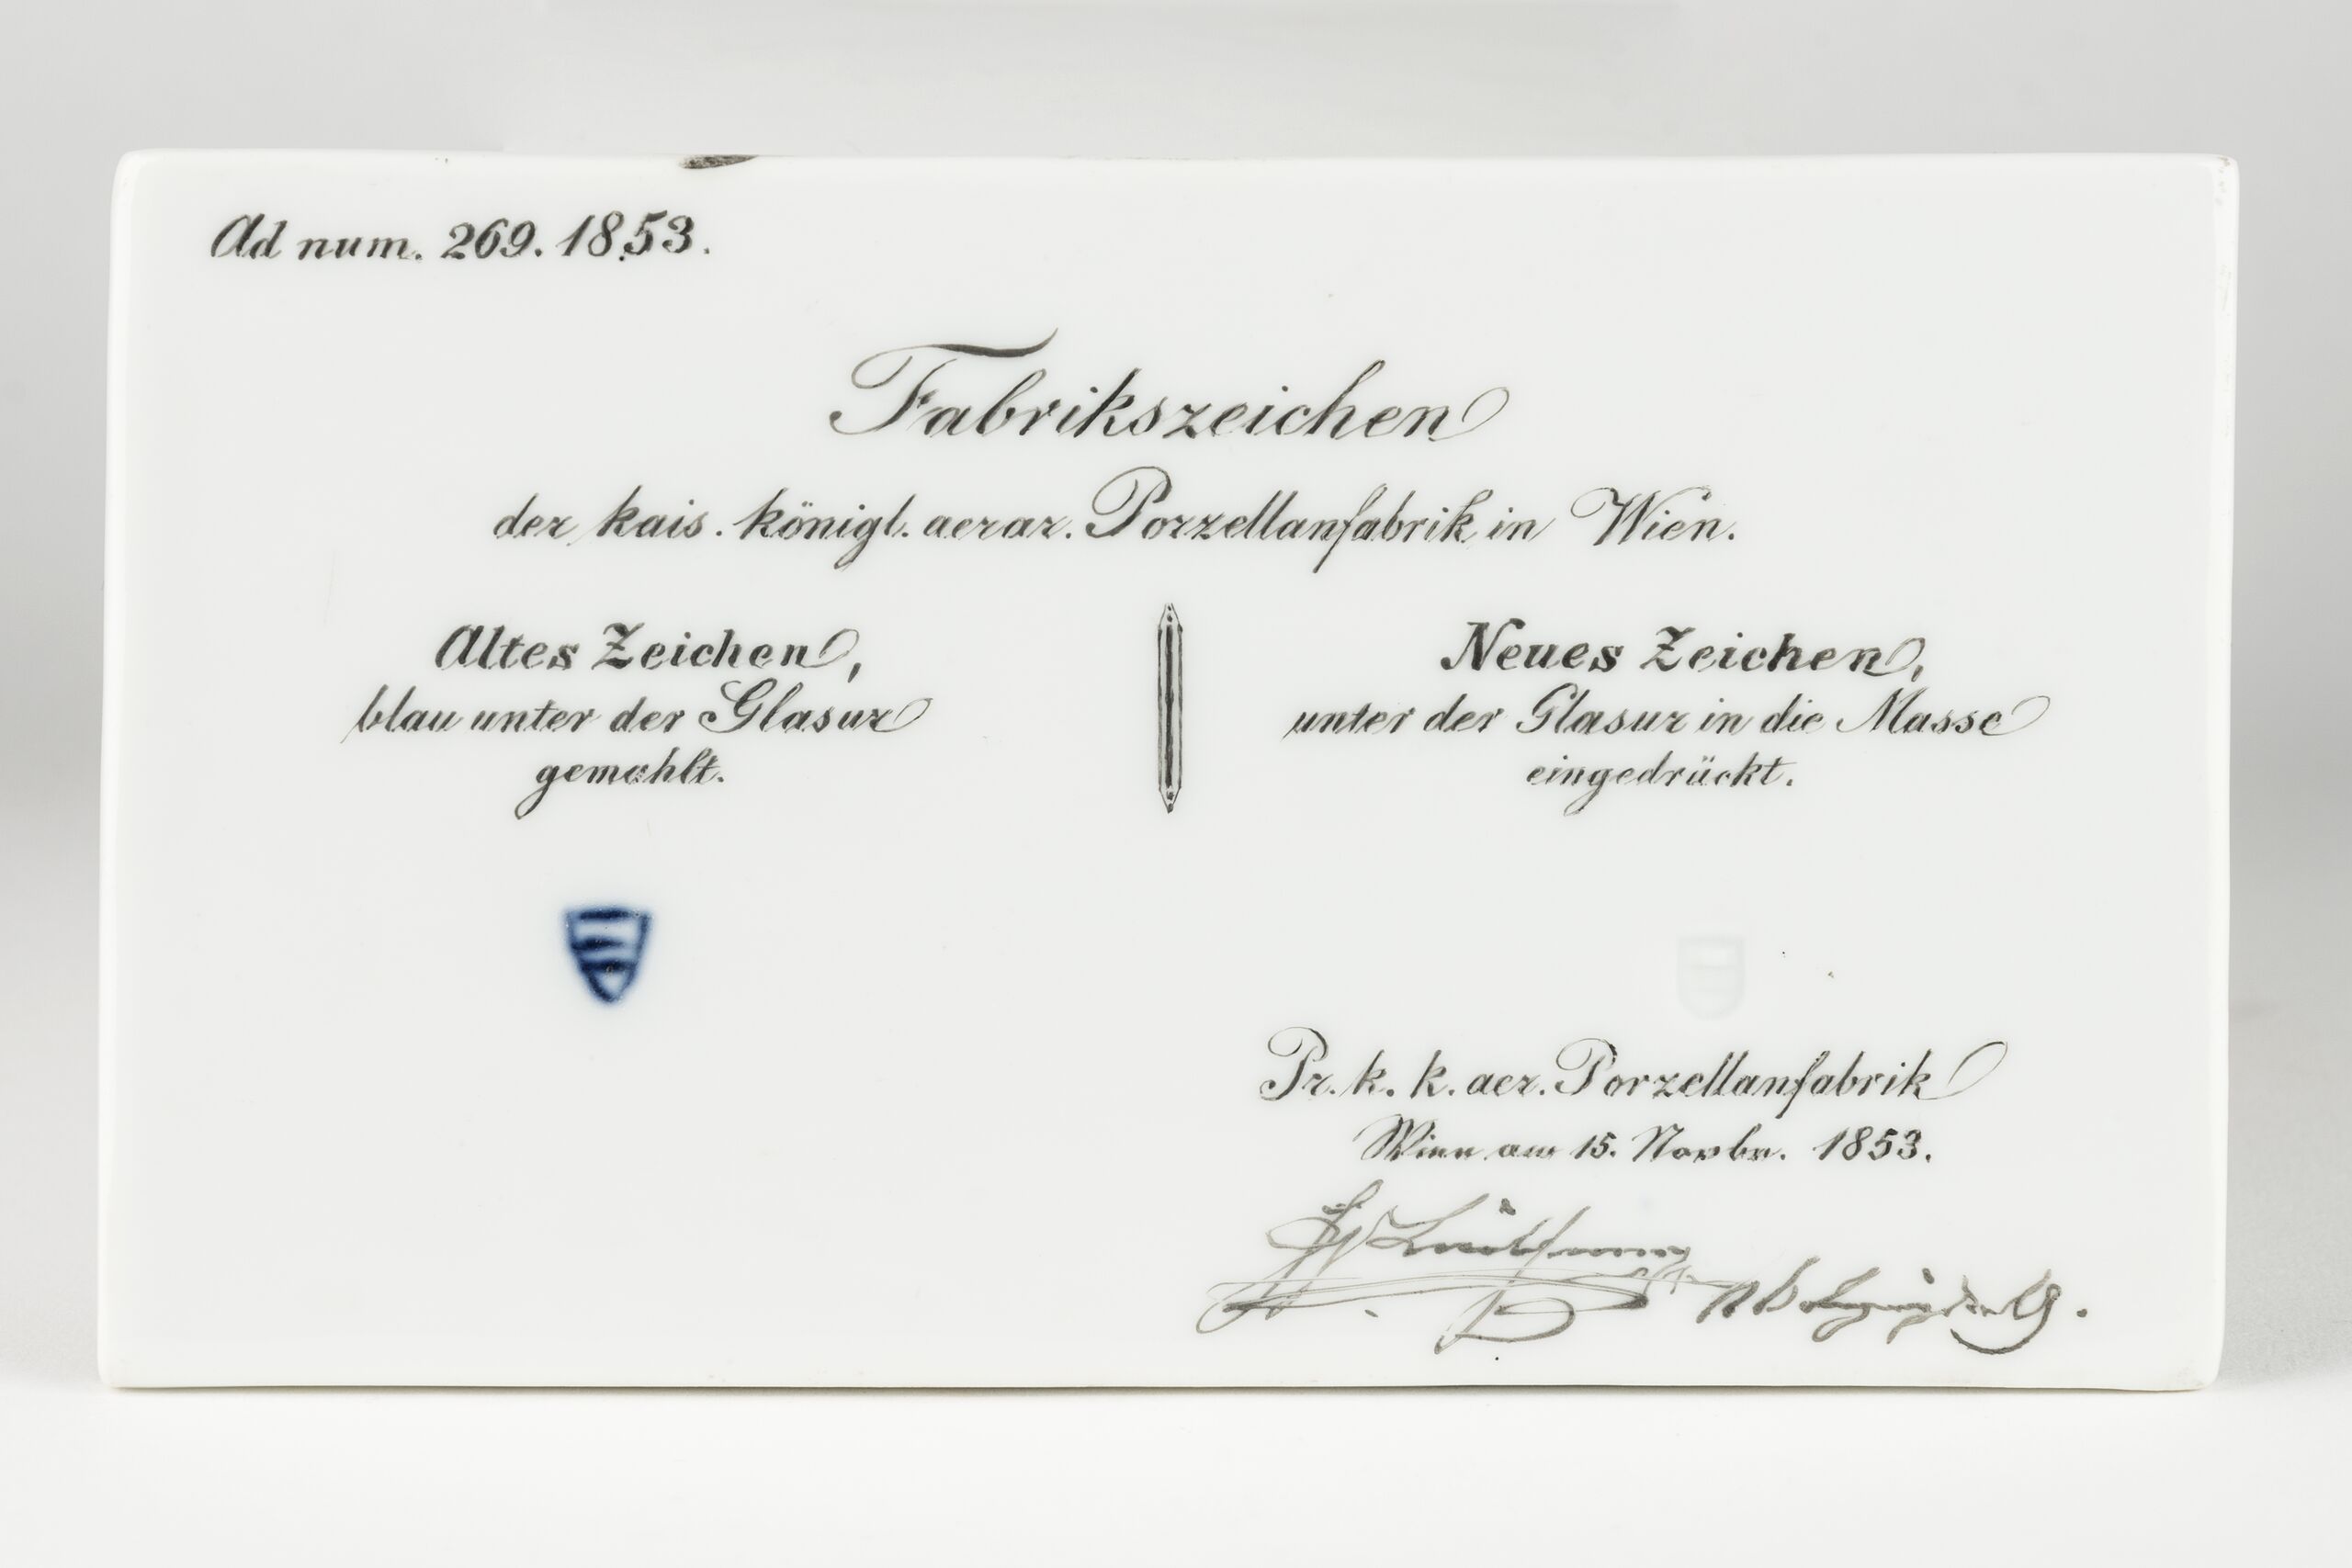 Ad num. 269. 1853.
Fabrikszeichen
der kais. königl. aerar. Porzellanfabrik in Wien.
Altes Zeichen,
blau unter der Glasur
gemahlt.
Neues Zeichen,
unter der Glasur in die Masse
eingedrückt.
Pr. k. k. aer. Porzellanfabrik
Wien am 15. Novbr. 1853.